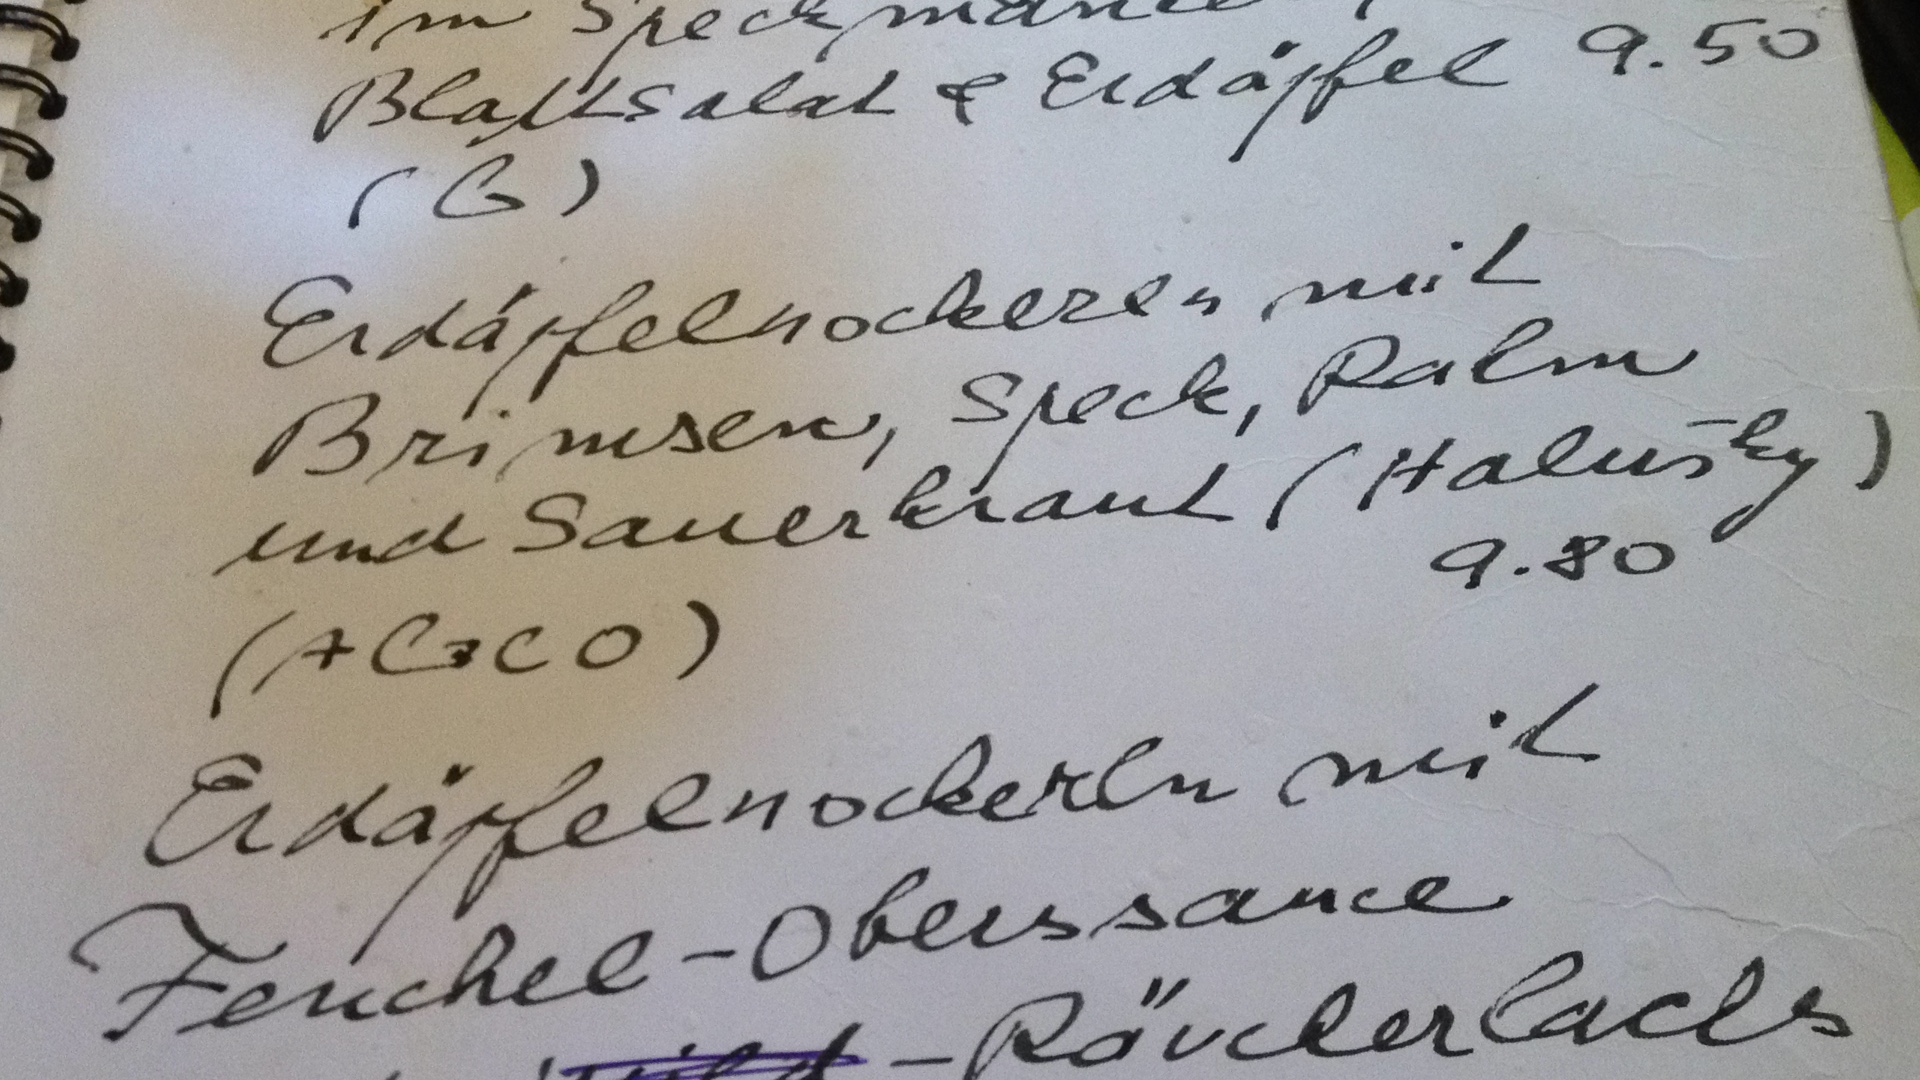 im Speckmantel,
Blattsalat & Erdäpfel 9.50
(G)
Erdäpfelnockerln mit
Brimsen, Speck, Rahm
und Sauerkraut (Halušky)
9.80
(ACGO)
Erdäpfelnockerln mit
Fenchel-Oberssauce
-Räucherlachs